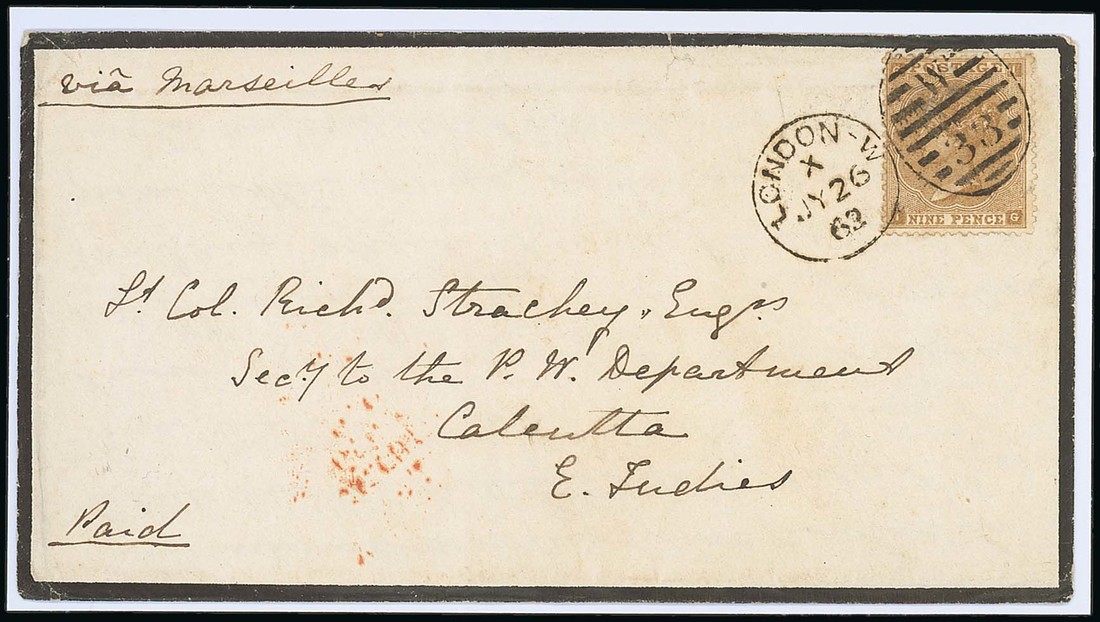 viâ Marseilles
POSTAGE
W
33
LONDON-W
X
JY 26
62
NINE PENCE G
Lt Col. Richd. Strachey, Engrs
Secy to the P. W. Department
Calcutta
E. Indies
Paid